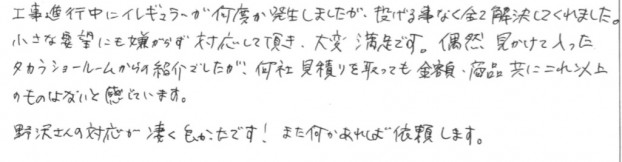 工事進行中にイレギュラーが何度か発生しましたが、投げる事なく全て解決してくれました。
小さな要望にも嫌がらず対応して頂き、大変満足です。偶然見かけて入った
タカラショールームからの紹介でしたが、何社見積りを取っても金額、商品共にこれ以上
のものはないと感じています。
野沢さんの対応が凄く良かったです！また何かあれば依頼します。